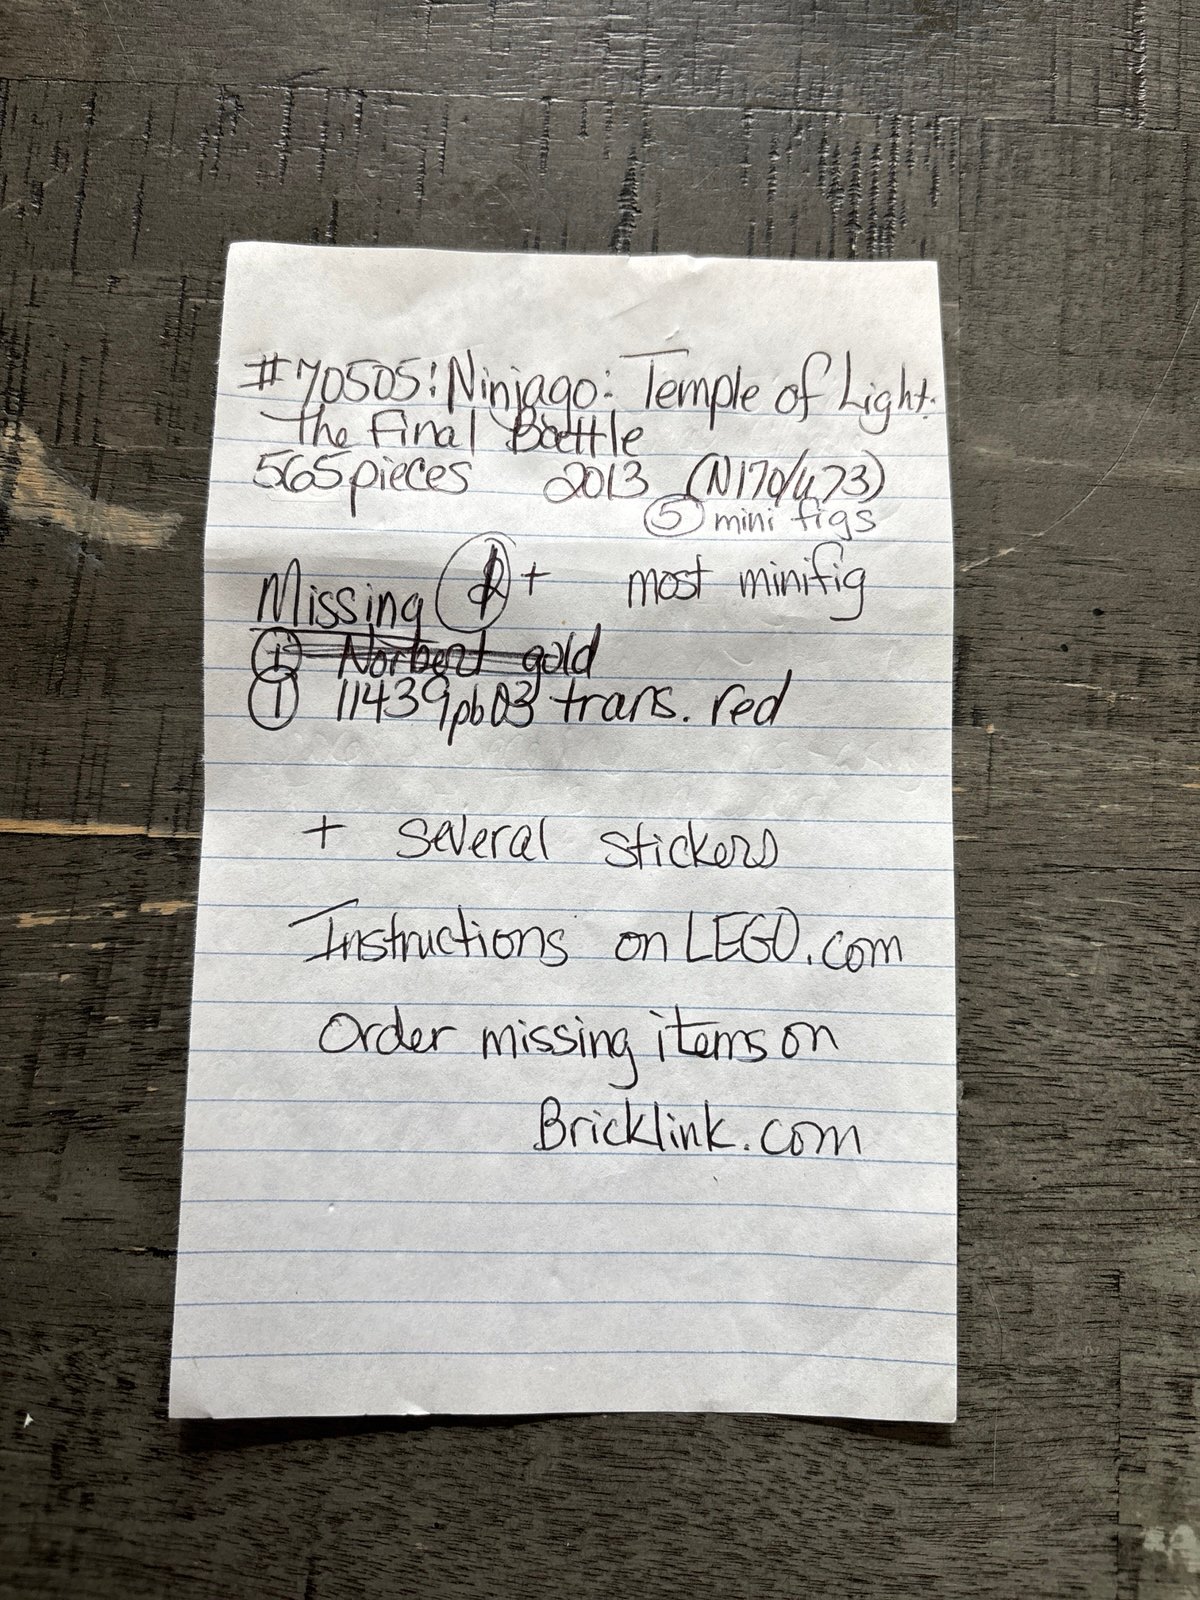 #70505: Ninjago: Temple of Light.
The Final Battle
565 pieces 2013 (N170/U73)
5 mini figs
Missing 1 + most minifig
1 Norbert gold
1 11439pb03 trans. red
+ several stickers
Instructions on LEGO.com
Order missing items on
Bricklink.com